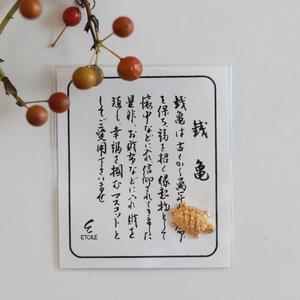 銭亀
銭亀は古くから萬年の寿命
を保ち、福を招く縁起物として
懐中などに入れ信仰されてきました
是非、お財布などに入れ財を
頭し、幸福を掴むマスコットと
してご愛用下さいませ
ETOILE